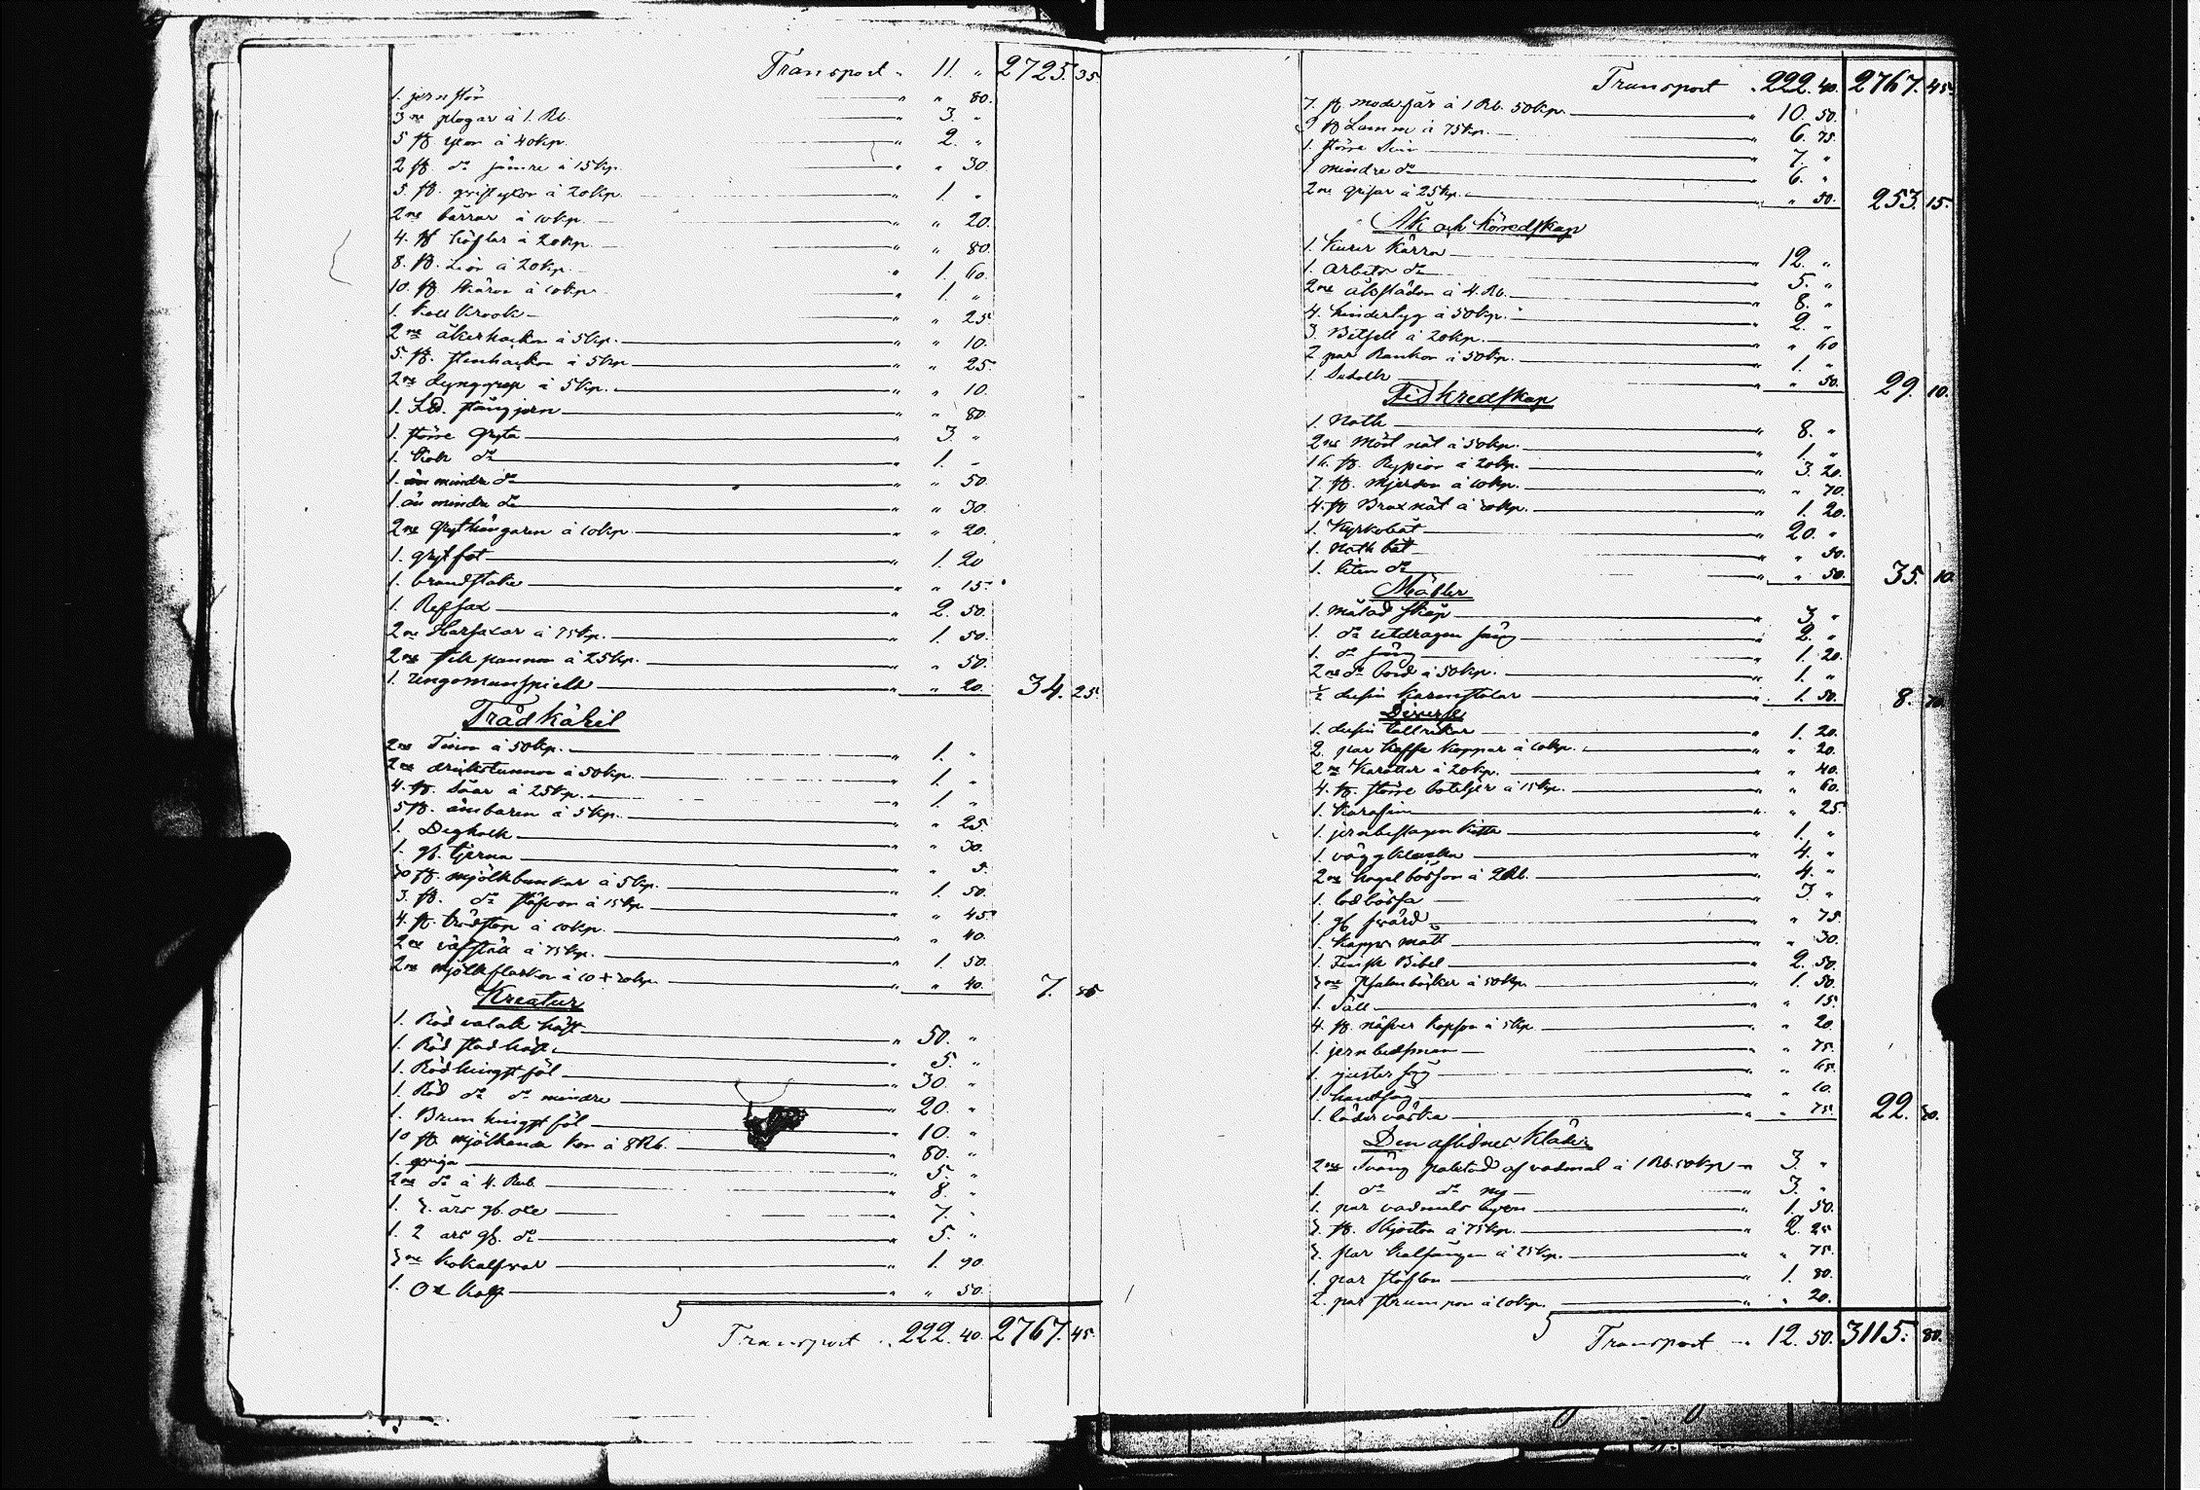 Transport „ 11. „ 2725. 35
1. jernstör „ „ 80.
3ne plogar à 1. Rb. „ 3. „
5 st. yxor à 40 kp. „ 2. „
2 st. do sämre à 15 kp. „ „ 30.
5 st. à 20 kp. „ 1. „
2ne bårrar à 10 kp. „ „ 20.
4. st höflar à 20 kp. „ „ 80.
8. st. Liar à 20 kp. „ 1. 60.
10. st. skäror à 10 kp. „ 1. „
1. krook „ „ 25
2ne åkerhackor à 5 kp. „ „ 10.
5. st. stenhackor à 5 kp. „ „ 25.
2ne dynggrep à 5 kp. „ „ 10.
1. Ld. stångjern „ „ 80
1. större gryta „ 3. „
1. do „ 1. „
1. mindre do „ „ 50.
1. än mindre do „ „ 30.
2ne grythängaren à 10 kp. „ „ 20.
1. grytfot „ 1. 20
1. brandstake „ „ 15.
1. Refsax „ 2. 50.
2ne à 75 kp. „ 1. 50.
2ne pannor à 25 kp. „ „ 50.
1. ungsmunspield „ „ 20. 34. 25.
Trädkähril
2ne Tinor à 50 kp. „ 1. „
2ne drickstunnor à 50 kp. „ 1. „
4. st. Såar à 25 kp. „ 1. „
5 st. ämbaren à 5 kp. „ „ 25.
1. Deghoek „ „ 30.
1. gl. tjerna „ „ 5.
30 st. mjölkbunkar à 5 kp. „ 1. 50.
3. st. do stäfvor à 15 kp. „ „ 45.
4. st. trädstop à 10 kp. „ „ 40.
2ne väfställ à 75 kp. „ 1. 50.
2ne mjölkflaskor à 10 + 30 kp. „ „ 40. 7. 85
Kreatur
1. Röd valak häst „ 50. „
1. Röd stod häst. „ 5. „
1. Röd hingst föl „ 30. „
1. Röd do do mindre „ 20. „
1. Brun hingst föl „ 10. „
10 st. mjölkande kor à 8 Rb. „ 80. „
1. qviga „ 5. „
2ne do à 4. Rub. „ 8. „
1. 3. års gl. oxe „ 7. „
1. 2 års gl. do „ 5. „
3ne kokalfvar „ 1. 90.
1. Ox kalf „ „ 50.
Transport „ 222. 40. 2767. 45
Transport „ 222. 40. 2767. 45.
7. st moderfår à 1 Rb. 50 kp. „ 10. 50.
9 st Lamm à 75 kp. „ 6. 75.
1. större Svin „ 7. „
1 mindre do „ 6. „
2ne grisar à 25 kp. „ „ 50. 253. 15.
Åk och körredskap
1. kurer kärra „ 12. „
1. arbets do „ 5. „
2ne åkslädor à 4. Rb. „ 8. „
4. hindertyg à 50 kp. „ 2. „
3 Betselt à 20 kp. „ „ 60
2 par Rankor à 50 kp. „ 1. „
1. Sadolk „ „ 50. 29. 10.
Fiskredskap
1. Noth „ 8. „
2ne Mört nät à 50 kp. „ 1. „
16. st. Rysior à 20 kp. „ 3. 20.
7. st. mjerdor à 10 kp. „ „ 70.
4. st Braxnät à 30 kp. „ 1. 20.
1. Kyrkobåt „ 20. „
1. Noth båt „ „ 50.
1. liten do „ „ 50. 35. 10.
Möbler
1. målad skåp „ 3. „
1. do utdragen säng „ 2. „
1. do säng „ 1. 20.
2ne do bord à 50 kp. „ 1. „
½ dussin karmstolar „ 1. 50. 8. 70.
Diverse
1. dussin tallrikar „ 1. 20.
2. par kaffe koppar à 10 kp. „ „ 20.
2ne Karotter à 20 kp. „ „ 40.
4. st. större boteljer à 15 kp. „ „ 60.
1. Karafin „ „ 25
1. jernbeslagen kista „ 1. „
1. väggklocka „ 4. „
2ne hagelbössor à 2 Rb. „ 4. „
1. lodbössa „ 3. „
1. gl svärd „ „ 75.
1. kappe mått „ „ 30.
1. Finsk Bibel „ 2. 50.
3ne Psalmböcker à 50 kp. „ 1. 50.
1. Såll „ „ 15.
4. st. näfver à 5 kp. „ „ 20.
1. jernbesman „ „ 75.
1. såg „ „ 65.
1. handsåg „ „ 10.
1. läder väska „ „ 75. 22. 30.
Den aflidnes kläder
2ne Svång paletåd af vadmal à 1 Rb. 50 kp „ 3. „
1. do do ny „ 3. „
1. par vadmals byxor „ 1. 50.
3. st. Skjortor à 75 kp. „ 2. 25
3. par kalsånger à 25 kp. „ „ 75.
1. par stöflar „ 1. 80.
2. par strumpor à 10 kp. „ „ 20.
Transport „ 12. 50. 3115. 80.